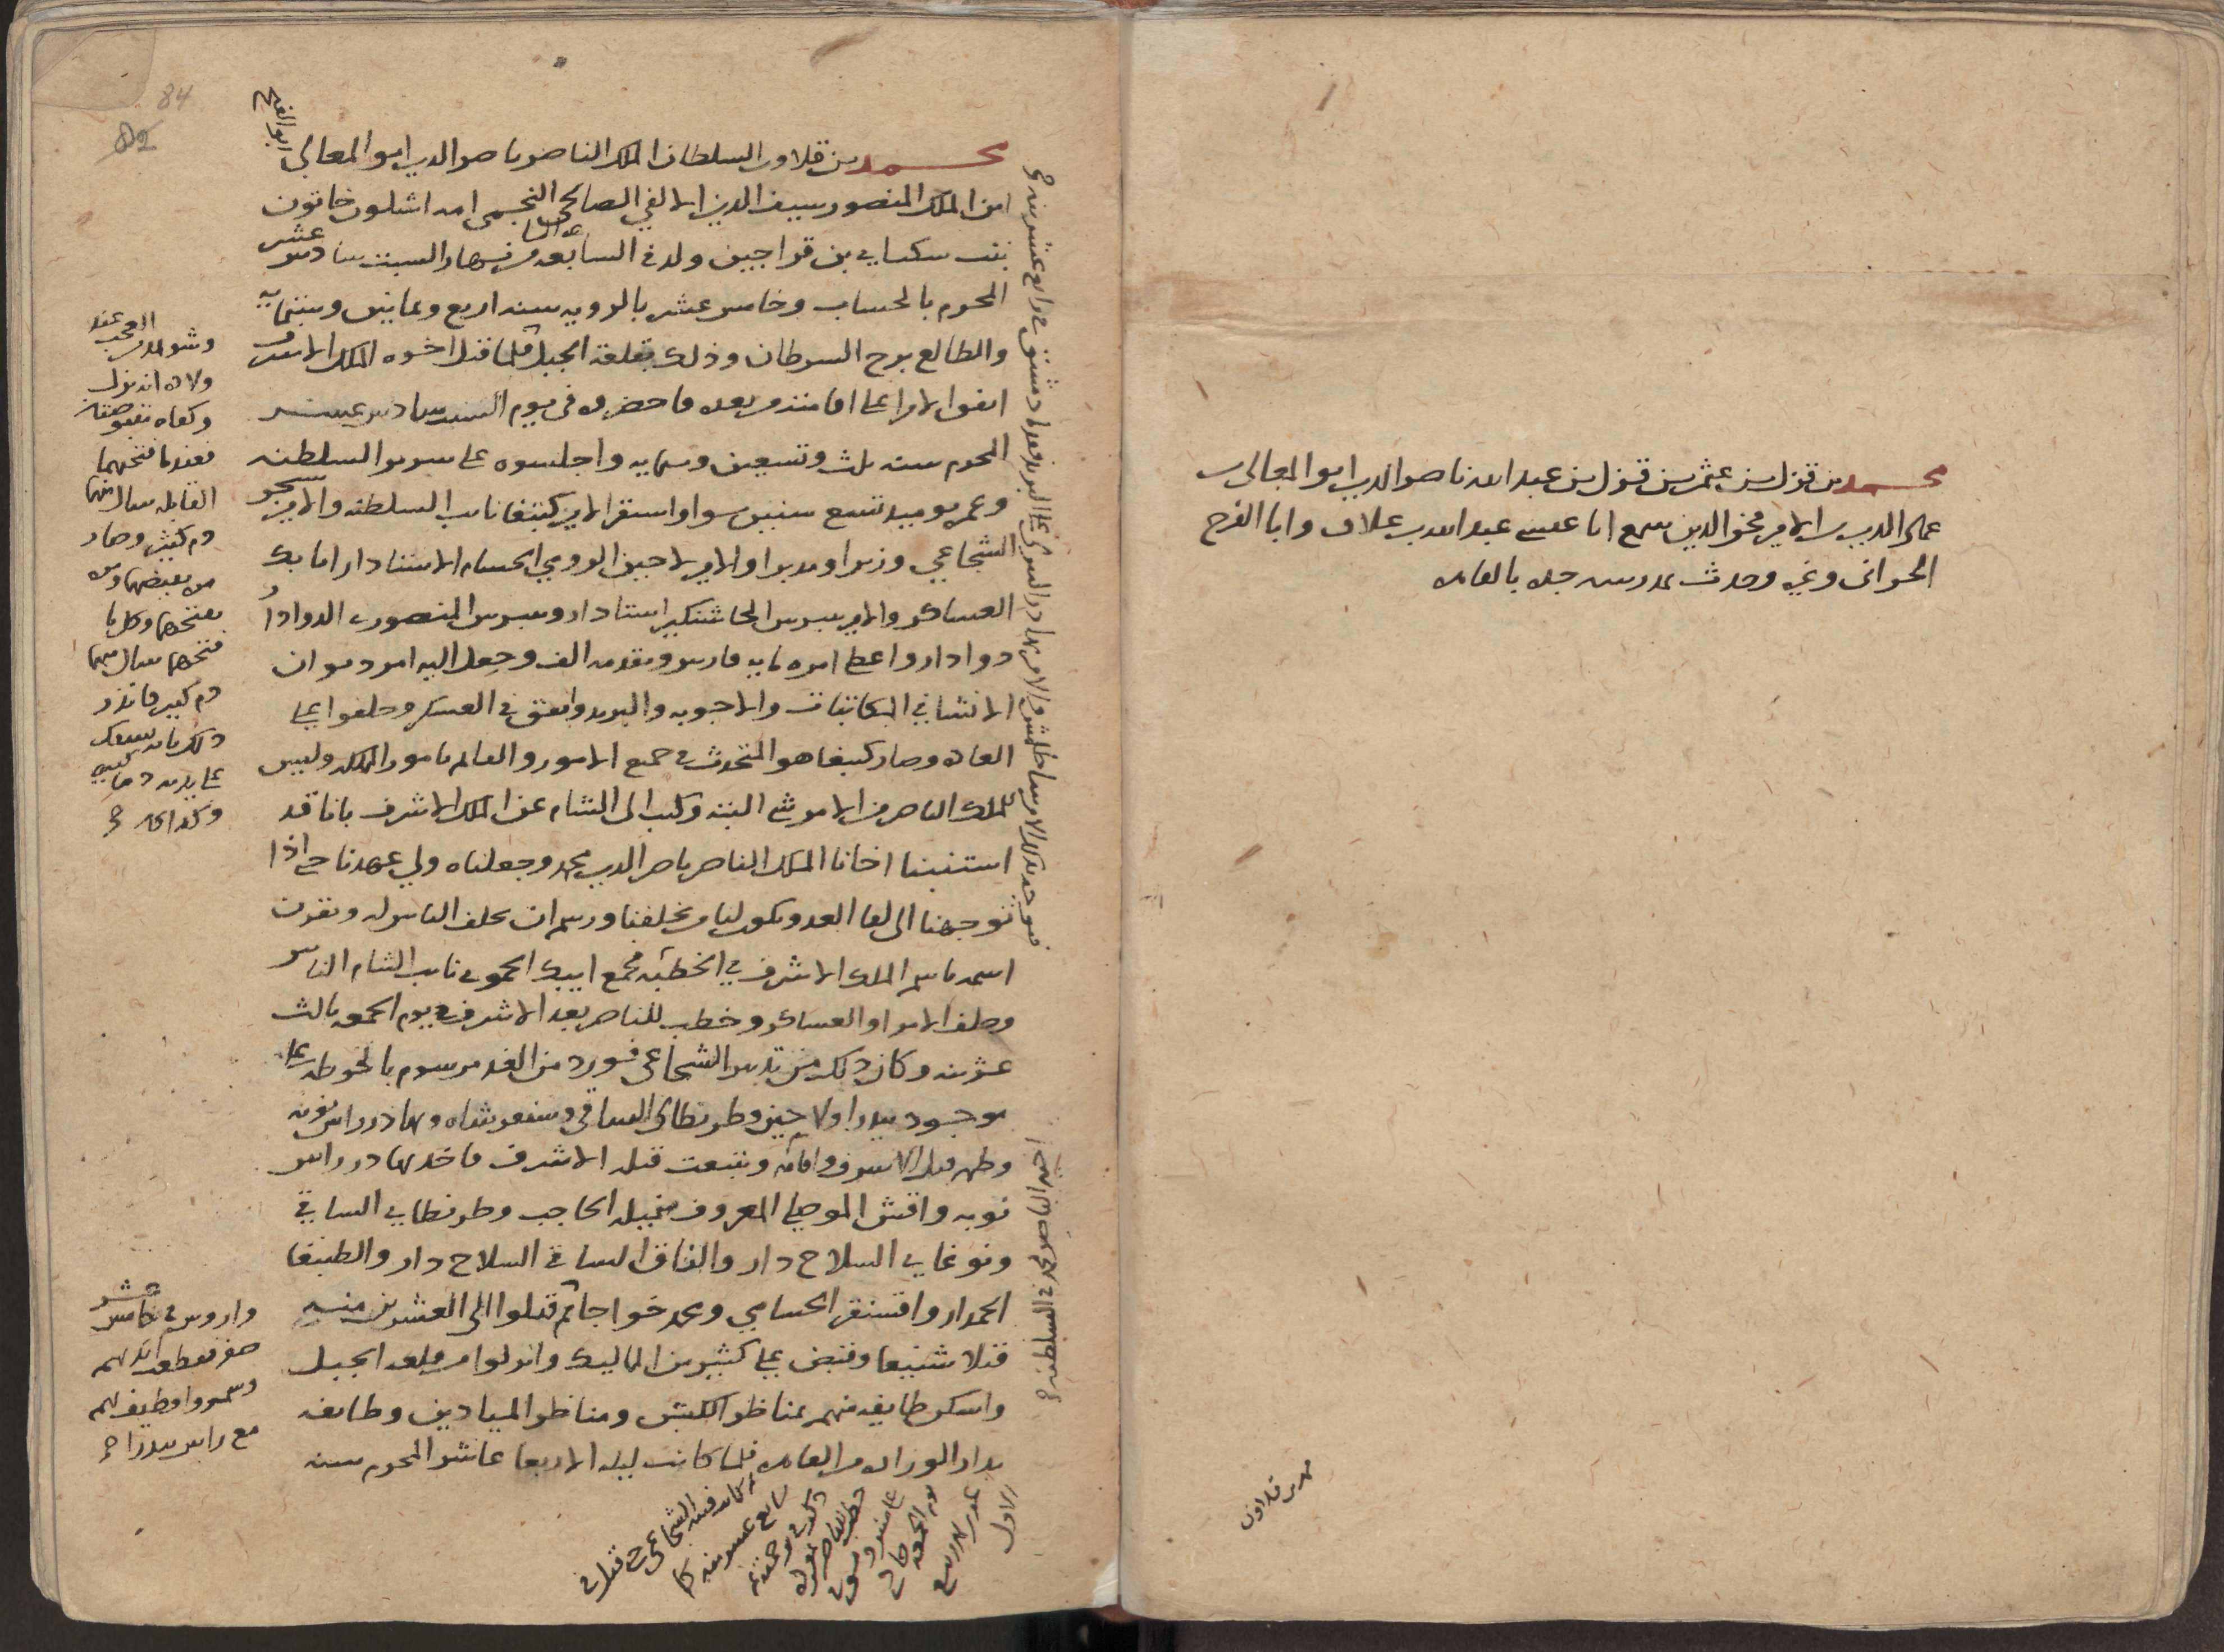 محمد بن قزل بن عثمن بن قزل بن عبد الله ناصر الدين ابو المعالي بن
عماد الدين بن الامير فخر الدين سمع ابا عيسى عبد الله بن علاق وابا الفرج
الحراني وغيره وحدث بمدرسه جده بالقاهره
محمد بن قلاون
84
82
محمد بن قلاون السلطان الملك الناصر ناصر الدين ابو المعالي ابو الفتح
ابن الملك المنصور سيف الدين الالفي الصالحي النجمي امه اشلون خاتون
بنت سكناي بن قراجين ولد في الساعه السابعه من نهار السبت سادس عشر
المحرم بالحساب وخامس عشر بالرويه سنه اربع وثمانين وستمايه
والطالع برج السرطان وذلك بقلعة الجبل فلما قتل اخوه الملك الاشرف
اتفق الامرا على اقامته من بعده فاحضروه في يوم السبت سادس عشر
المحرم سنه ثلث وتسعين وستمايه واجلسوه على سرير السلطنه
وعمره يوميذ تسع سنين سوا واستقر الامير كتبغا نايب السلطنه والامير سنجر
الشجاعي وزيرا ومدبرا والامير لاجين الرومي الحسام الاستادار اتابك
العساكر والامير بيبرس الجاشنكير استادار وبيبرس المنصوري الدوادار
دوادار واعطى امره مايه فارس وتقدمه الف وجعل اليه امر ديوان
الانشا في المكاتبات والاجوبه والبريد وانفق في العسكر وحلفوا على
العاده وصار كتبغا هو المتحدث في جميع الامور والقايم بامور المملكه وليس
للملك الناصر من الامر شي البته وكتب الى الشام عن الملك الاشرف باننا قد
استنبنا اخانا الملك الناصر ناصر الدين محمد وجعلناه ولي عهدنا حتى اذا
توجهنا الى لقا العدو يكون لنا من يخلفنا ورسم ان يحلف الناس له ويقرن
اسمه باسم الملك الاشرف في الخطبه فجمع ايبك الحموي نايب الشام الناس
وحلف الامرا والعساكر وخطب للناصر بعد الاشرف في يوم الجمعه ثالث
عشرينه وكان ذلك من تدبير الشجاعي فورد من الغد مرسوم بالحوطه على
موجود بيدرا ولاجين وطرنطاي الساقي وسنقر شاه وبهادر راس نوبه
وظهر قتل الاشرف واقامه وتتبعت قتله الاشرف فاخذ بهادر راس
نوبه واقش الموصلي المعروف بنميله الحاجب وطرنطاي الساقي
ونوغاي السلاح دار والناق الساقي السلاح دار والطنبغا
الجمدار واقسنقر الحسامي ومحمد خواجا ثم قتلوا الى العشرين منه
قتلا شنيعا وقبض على كثير من المماليك وانزلوا من قلعه الجبل
واسكن طايفه منهم بمناظر الكبش ومناظر الميادين وطايفه
بدار الوزاره من القاهره فلما كانت ليله الاربعا عاشر المحرم سنه
ولاده انه نزل
فعندما فتحهما
القابله سال منها
دم كثير وصار
فتحهما سال منهما
دم كثير فانذر
ذلك بانه يسفك
على يديه دما كثيره
وكذا كان
واروس في خامس عشر
صفر فقطعت ايديهم
وسمروا وطيف بهم
مع راس بيدرا
ثم كانت فتنه الشجاعي حتى قتل في